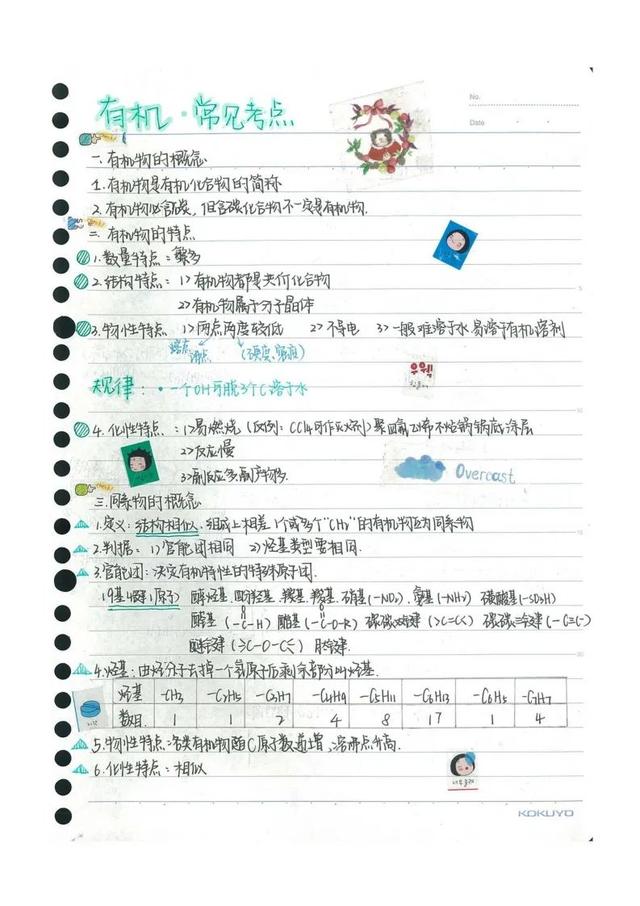 有机·常见考点
No.
Date
一.有机物的概念
1.有机物是有机化合物的简称
2.有机物必含碳，但含碳化合物不一定是有机物.
二.有机物的特点
1.数量特点：繁多
2.结构特点：1>有机物都是共价化合物
2>有机物属于分子晶体
3.物性特点 1>两点两度较低 2>不导电 3>一般难溶于水易溶于有机溶剂
熔点 沸点 (硬度,密度)
우웩
规律：·一个OH可能3个C溶于水
4.化性特点：1>易燃烧(反例：CCl4可作灭火剂)聚四氟乙烯不粘锅锅底涂层
2>反应慢
3>副反应多副产物多.
Overcast
三.同系物的概念
1.定义：结构相似,组成上相差1个或多个"CH2"的有机物互为同系物
2.判据：1)官能团相同 2)烃基类型要相同.
3.官能团：决定有机特性的特殊原子团.
(9基4键1原子) 醇羟基.酚羟基.羧基.硝基(-NO2).氨基(-NH2) 磺酸基(-SO3H)
醛基(-C-H) 酯基(-C-O-R) 碳碳双键(>C=C<) 碳碳三键(-C≡C-)
醚键(≥C-O-C≤) 肽键.
4.烃基：由烃分子去掉一个氢原子后剩余部分叫烃基.
烃基 -CH3 -C2H5 -C3H7 -C4H9 -C5H11 -C6H13 -C6H5 -C7H7
数目 1 1 2 4 8 17 1 4
5.物性特点：各类有机物随C原子数递增,溶沸点升高.
6.化性特点：相似
KOKUYO